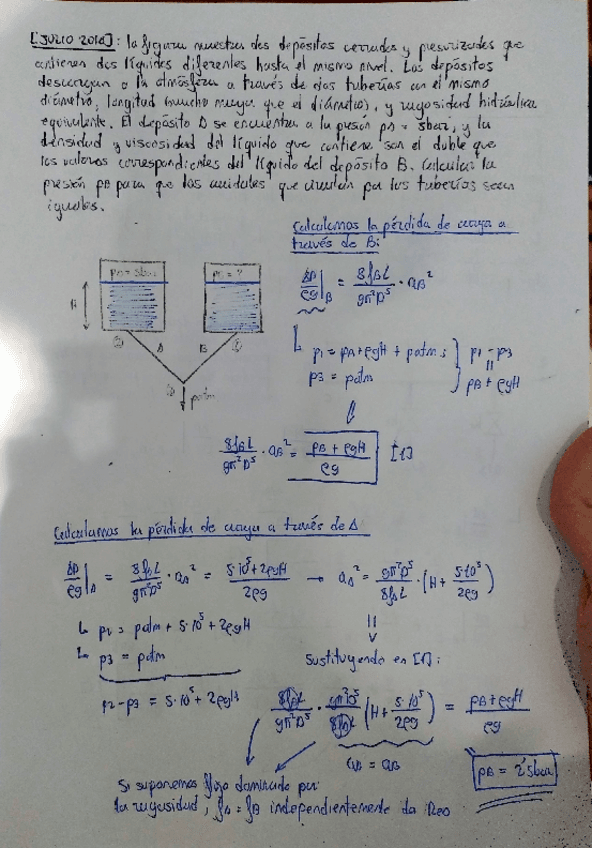 [JULIO 2016]: la figura muestra dos depósitos cerrados y presurizados que
contienen dos líquidos diferentes hasta el mismo nivel. Los depósitos
descargan a la atmósfera a través de dos tuberías con el mismo
diámetro, longitud (mucho mayor que el diámetro), y rugosidad hidráulica
equivalente. El depósito A se encuentra a la presión pA = 5bar, y la
densidad y viscosidad del líquido que contiene son el doble que
los valores correspondientes del líquido del depósito B. Calcular la
presión pB para que los caudales que circulan por las tuberías sean
iguales.
Calculamos la pérdida de carga a
través de B:
ΔP/ρg|B = 8fBL/gπ²D⁵ · QB²
p1 = pA + ρgH + patm ; } p1 - p3
p3 = patm } = pB + ρgH
pA = 5bar
p = ?
H
② A B ①
③ patm
8fBL/gπ²D⁵ · QB² = (pB + ρgH)/ρg [1]
Calculamos la pérdida de carga a través de A
ΔP/ρg|A = 8fAL/gπ²D⁵ · QA² = (5·10⁵ + 2ρgH)/2ρg → QA² = gπ²D⁵/8fAL · (H + 5·10⁵/2ρg)
p2 = patm + 5·10⁵ + 2ρgH
p3 = patm
Sustituyendo en [1]:
p2 - p3 = 5·10⁵ + 2ρgH
8fBL/gπ²D⁵ · gπ²D⁵/8fAL (H + 5·10⁵/2ρg) = (pB + ρgH)/ρg
QA = QB
pB = 2'5bar
Si suponemos flujo dominado por
la rugosidad, fA = fB independientemente de Reo